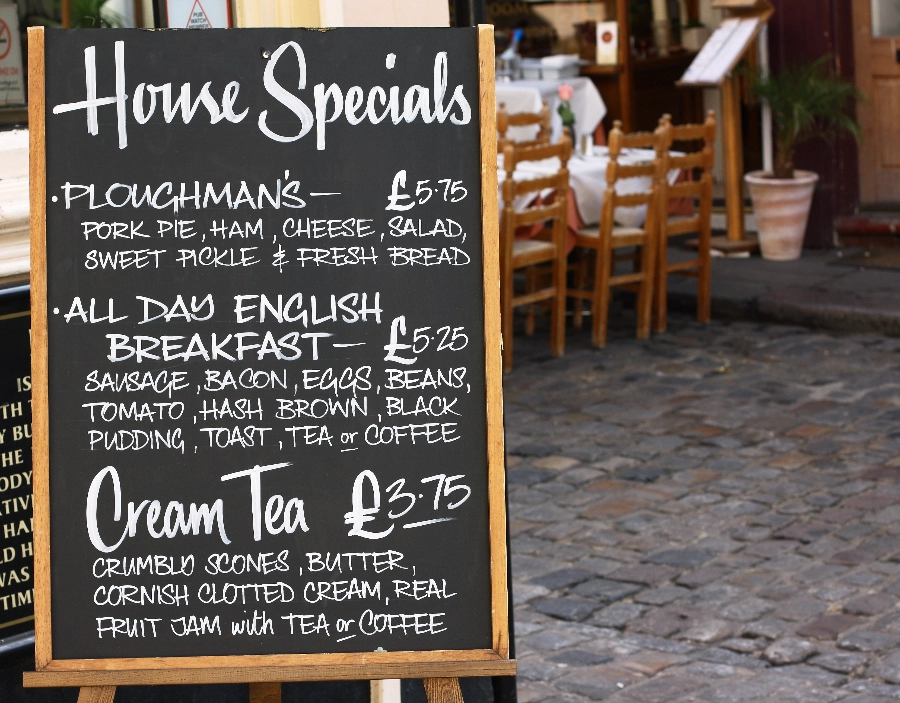 House Specials
·PLOUGHMAN'S— £5·75
PORK PIE, HAM, CHEESE, SALAD,
SWEET PICKLE & FRESH BREAD
·ALL DAY ENGLISH
BREAKFAST— £5·25
SAUSAGE, BACON, EGGS, BEANS,
TOMATO, HASH BROWN, BLACK
PUDDING, TOAST, TEA or COFFEE
Cream Tea £3·75
CRUMBLY SCONES, BUTTER,
CORNISH CLOTTED CREAM, REAL
FRUIT JAM with TEA or COFFEE